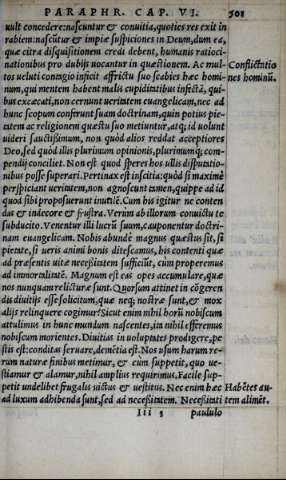 PARAPHR. CAP. VI. 501
uult concedere: nascuntur & conuitia, quoties res exit in
rabiem: nascuntur & impiæ suspiciones in Deum, dum ea,
quæ citra disquisitionem credi debent, humanis ratioci-
nationibus pro dubijs uocantur in quæstionem. Ac mul Conflictatio
tos ueluti contagio inficit affrictu suo scabies hæc homi nes hominū.
num, qui mentem habent malis cupiditatibus infectā, qui-
bus excæcati, non cernunt ueritatem euangelicam, nec ad
hunc scopum conferunt suam doctrinam, quin potius pie-
tatem ac religionem quæstu suo metiuntur, atq; id uolunt
uideri sanctissimum, non quòd alios reddat acceptiores
Deo, sed quod illis plurimum opinionis, plurimumq; com-
pendij conciliet. Non est quod speres hos uillis disputatio-
nibus posse superari. Pertinax est inscitia: quòd si maximè
perspiciant ueritatem, non agnoscunt tamen, quippe ad id
quod sibi proposuerunt inutilē. Cum his igitur ne conten
das & indecore & frustra. Verùm ab illorum conuictu te
subducito. Venentur illi lucrū suum, cauponentur doctri-
nam euangelicam. Nobis abundè magnus quæstus sit, si
pietate, si ueris animi bonis ditescamus, his contenti quæ
ad præsentis uitæ necessitatem sufficiūt, cùm properemus
ad immortalitatē. Magnum est eas opes accumulare, quæ
nos nunquam relicturæ sunt. Quorsum attinet in cōgeren
dis diuitijs esse solicitum, quæ neq; nostræ sunt, & mox
alijs relinquere cogimur? Sicut enim nihil horū nobiscum
attulimus in hunc mundum nascentes, ita nihil efferemus
nobiscum morientes. Diuitias in uoluptates prodigere, pe
stis est: conditas seruare, demētia est. Nos usum harum re-
rum naturæ finibus metimur, & cùm suppetit, quo ue-
stiamur & alamur, nihil amplius requirimus. Facile sup-
petit undelibet frugalis uictus & uestitus. Nec enim hæc Habētes au-
ad luxum adhibenda sunt, sed ad necessitatem. Necessitati tem alimēt.
Iii 3 paululo